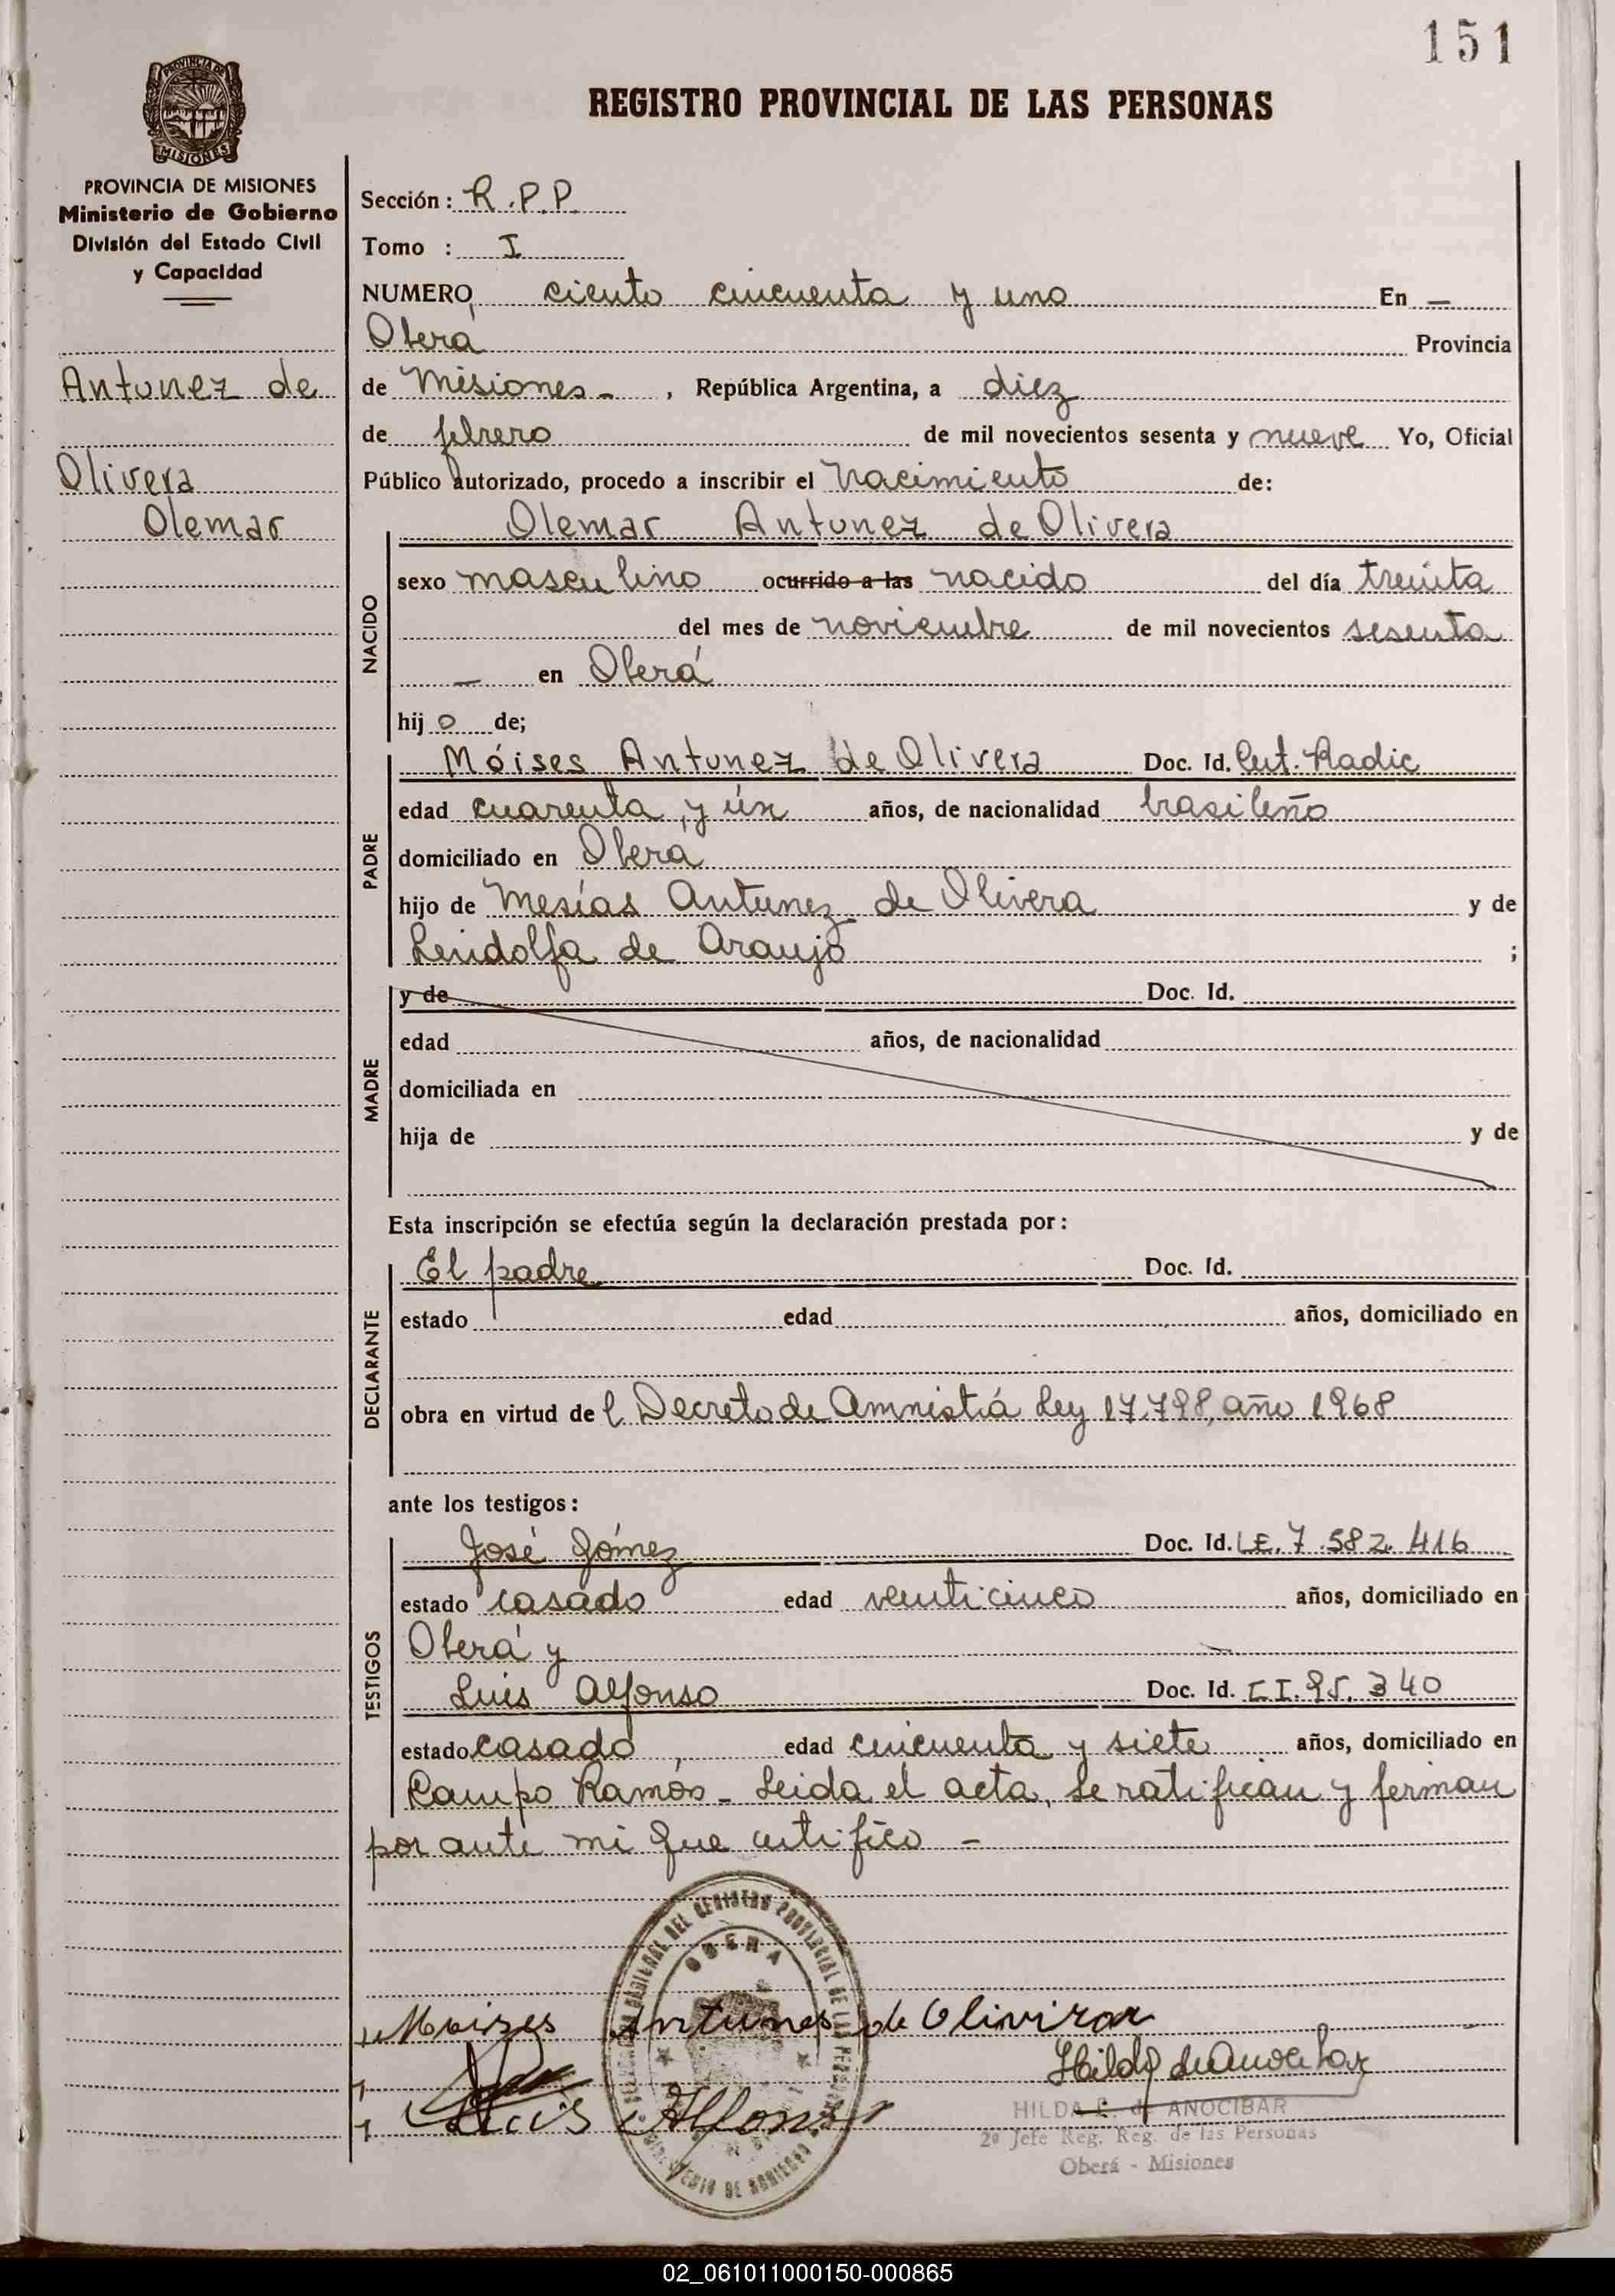 151
REGISTRO PROVINCIAL DE LAS PERSONAS
PROVINCIA DE
MISIONES
PROVINCIA DE MISIONES
Ministerio de Gobierno
División del Estado Civil
y Capacidad
Antunez de
Olivera
Olemar
Sección: R.P.P.
Tomo : I
NUMERO ciento cincuenta y uno En —
Oberá Provincia
de Misiones - , República Argentina, a diez
de febrero de mil novecientos sesenta y nueve Yo, Oficial
Público autorizado, procedo a inscribir el Nacimiento de:
NACIDO
Olemar Antunez de Olivera
sexo masculino ocurrido a las nacido del día treinta
del mes de noviembre de mil novecientos sesenta
— en Oberá
hij o de;
PADRE
Móises Antunez de Olivera Doc. Id. Cert. Radic
edad cuarenta y ún años, de nacionalidad brasileño
domiciliado en Oberá
hijo de Mesías Antunez de Olivera y de
Lindolfa de Araujo ;
MADRE
y de Doc. Id.
edad años, de nacionalidad
domiciliada en
hija de y de
Esta inscripción se efectúa según la declaración prestada por:
DECLARANTE
El padre Doc. Id.
estado edad años, domiciliado en
obra en virtud de l Decreto de Amnistiá Ley 17.798, año 1968
ante los testigos:
TESTIGOS
José Gómez Doc. Id. L.E. 7.582.416
estado casado edad venticinco años, domiciliado en
Oberá y
Luis Alfonso Doc. Id. C.I. 95.340
estado casado , edad cincuenta y siete años, domiciliado en
Campo Ramós - Leida el acta, se ratifican y firman
por ante mi que certifico -
OBERA
Moizes Antunes de Olivirar
Luis Alfonso
Hilda de Anocibar
HILDA E. de ANOCIBAR
2º Jefe Reg. Reg. de las Personas
Oberá - Misiones
02_061011000150-000865